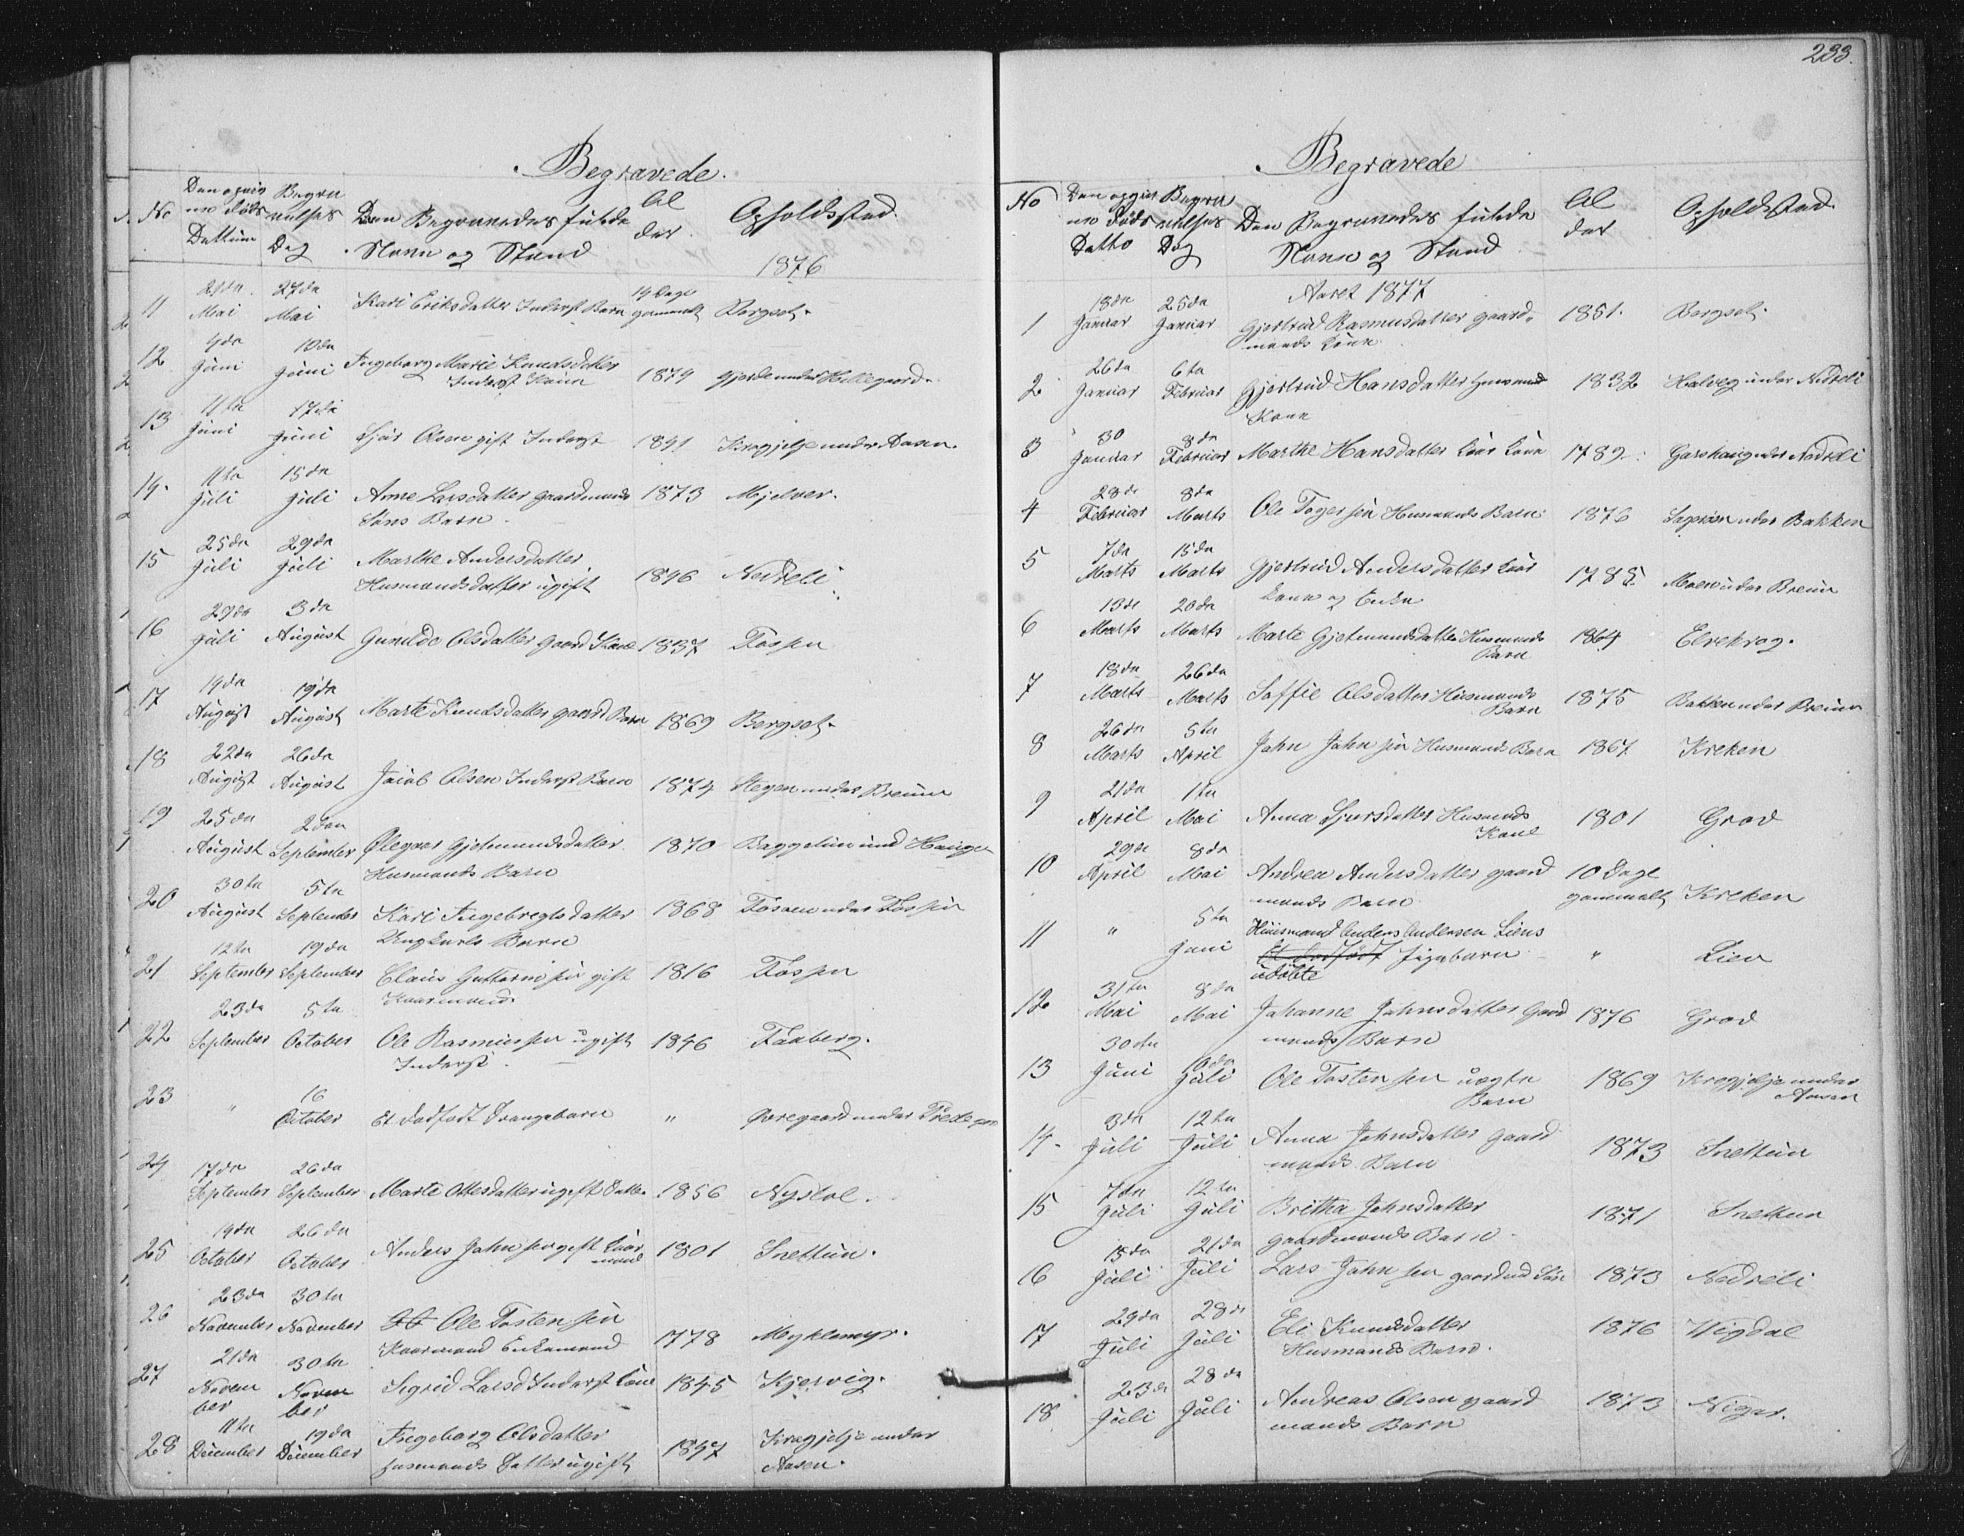 233.
Begravede.
No
Den opgiv
ne Döds
Dattum
Begra
velses
Dag
Den Begravedes fulde
Navn og Stand
Al
der
Opholdssted.
1876
11 21de Mai 27de Mai Kari Eriksdatter Inderst Barn 14 Dage gammelt Bergset.
12 4de Juni 13de Juni Ingeborg Marie Knudsdatter
Inderst Kone 1874 Gjerde under Hellegaard.
13 11te Juni 17de Juni Sjur Olsen gift Inderst 1841 Kragjelje under Aasen.
14. 11te Juli 15de Juli Anne Larsdatter gaardmands
Søns Barn 1873 Mjelver.
15 25de Juli 29de Juli Marthe Andersdatter
Husmandsdatter ugift 1846 Nedreli.
16 29de Juli 3de August Gunilde Olsdatter Gaard Kone 1837 Fossen
17 14de August 19de August Marte Knudsdatter gaard Barn 1869 Bergset.
18 22de August 26de August Jacob Olsen Inderst Barn 1874 Stegen under Breum
19 25de August 2den September Olegver Gjetmundsdatter
Husmands Barn 1870 Baggetun und Haugen
20 30te August 5te September Kari Ingebregtsdatter
Ungkarls Barn 1868 Fossen under Fossen
21 12te September 19de September Claus Guttormsen gift
Kaarmand. 1816 Fossen
22 23de September 5te October Ole Rasmussen ugift
Inderst. 1846 Faaberg.
23 " 16 October Et dødfødt Drangebarn " Øvregaard under
24 17de September 26de September Marte Ottesdatter ugift Datter 1856 Nystøl.
25 19de October 26de October Anders Jahnsen gift Kaar
mand 1801 Snettun.
26 23de November 30te November Ole Tostensen
Kaarmand Enkemand 1778 Myklemyr.
27 21de Novem
ber 30te Novem
ber Sigrid Larsd Inderst Kone 1845 Kjervig.
28 11te December 19de December Ingeborg Olsdatter
husmands Datter ugift 1847 Kragjelje under
Aasen.
Begravede
No
Den opgiv
ne Döds
Datto
Begra
velses
Dag
Den Begravedes fulde
Navn og Stand
Al
der
Opholdssted.
Aaret 1877
1 18de Januar 25de Januar Gjertrud Rasmusdatter gaard
mands Kone 1851. Bergset.
2 26de Januar 6te Februar Gjertrud Hansdatter Husmand
Kone 1832 Halveg under Nedreli
3 30 Januar 8de Februar Marthe Hansdatter Kaar Kone 1789. Garshaug under Nedreli
4 28de Februar 8de Marts Ole Togersen Husmands Barn 1876 under Bakken
5 7de Marts 15de Marts Gjertrud Andersdatter Kaar
Kone og Enke 1785. Moen under Breum
6 13de Marts 20de Marts Marte Gjetmundsdatter Husmands
Barn 1864 Elvekrog.
7 18de Marts 26de Marts Soffie Olsdatter Husmands
Barn 1875 Bakken under Breum
8 26de Marts 5te April Jahn Jahnsen Husmands Barn 1867 Kreken
9 21de April 1te Mai Anna Sjursdatter Husmands
Kone 1801 Grov
10 29de April 8de Mai Andrea Andersdatter gaard
mands Barn 10 Dage
gammelt Kreken
11 " 5te Juni Huusmand Anders Andersen Liens
Et dødfødt Pigebarn
udöbte " Lien
12 31te Mai 8de Mai Johanne Jahnsdatter Gaard
mands Barn 1876 Grov
13 30te Juni 6de Juli Ole Tostensen uægte
Barn 1869 Kragjelje under
Aasen
14. 3de Juli 12te Juli Anna Jahnsdatter gaard
mands Barn 1873 Snettun
15 7de Juli 12te Juli Britha Jahnsdatter
gaardmands Barn 1871 Snettun
16 15de Juli 21de Juli Lars Jahnsen gaardmd Søn 1873 Nedreli
17 29de Juli 28de Juli Eli Knudsdatter
Husmands Barn. 1876 Wigdal
18 23de Juli 28de Juli Andreas Olsen gaard
mands Barn 1873 Nigar.